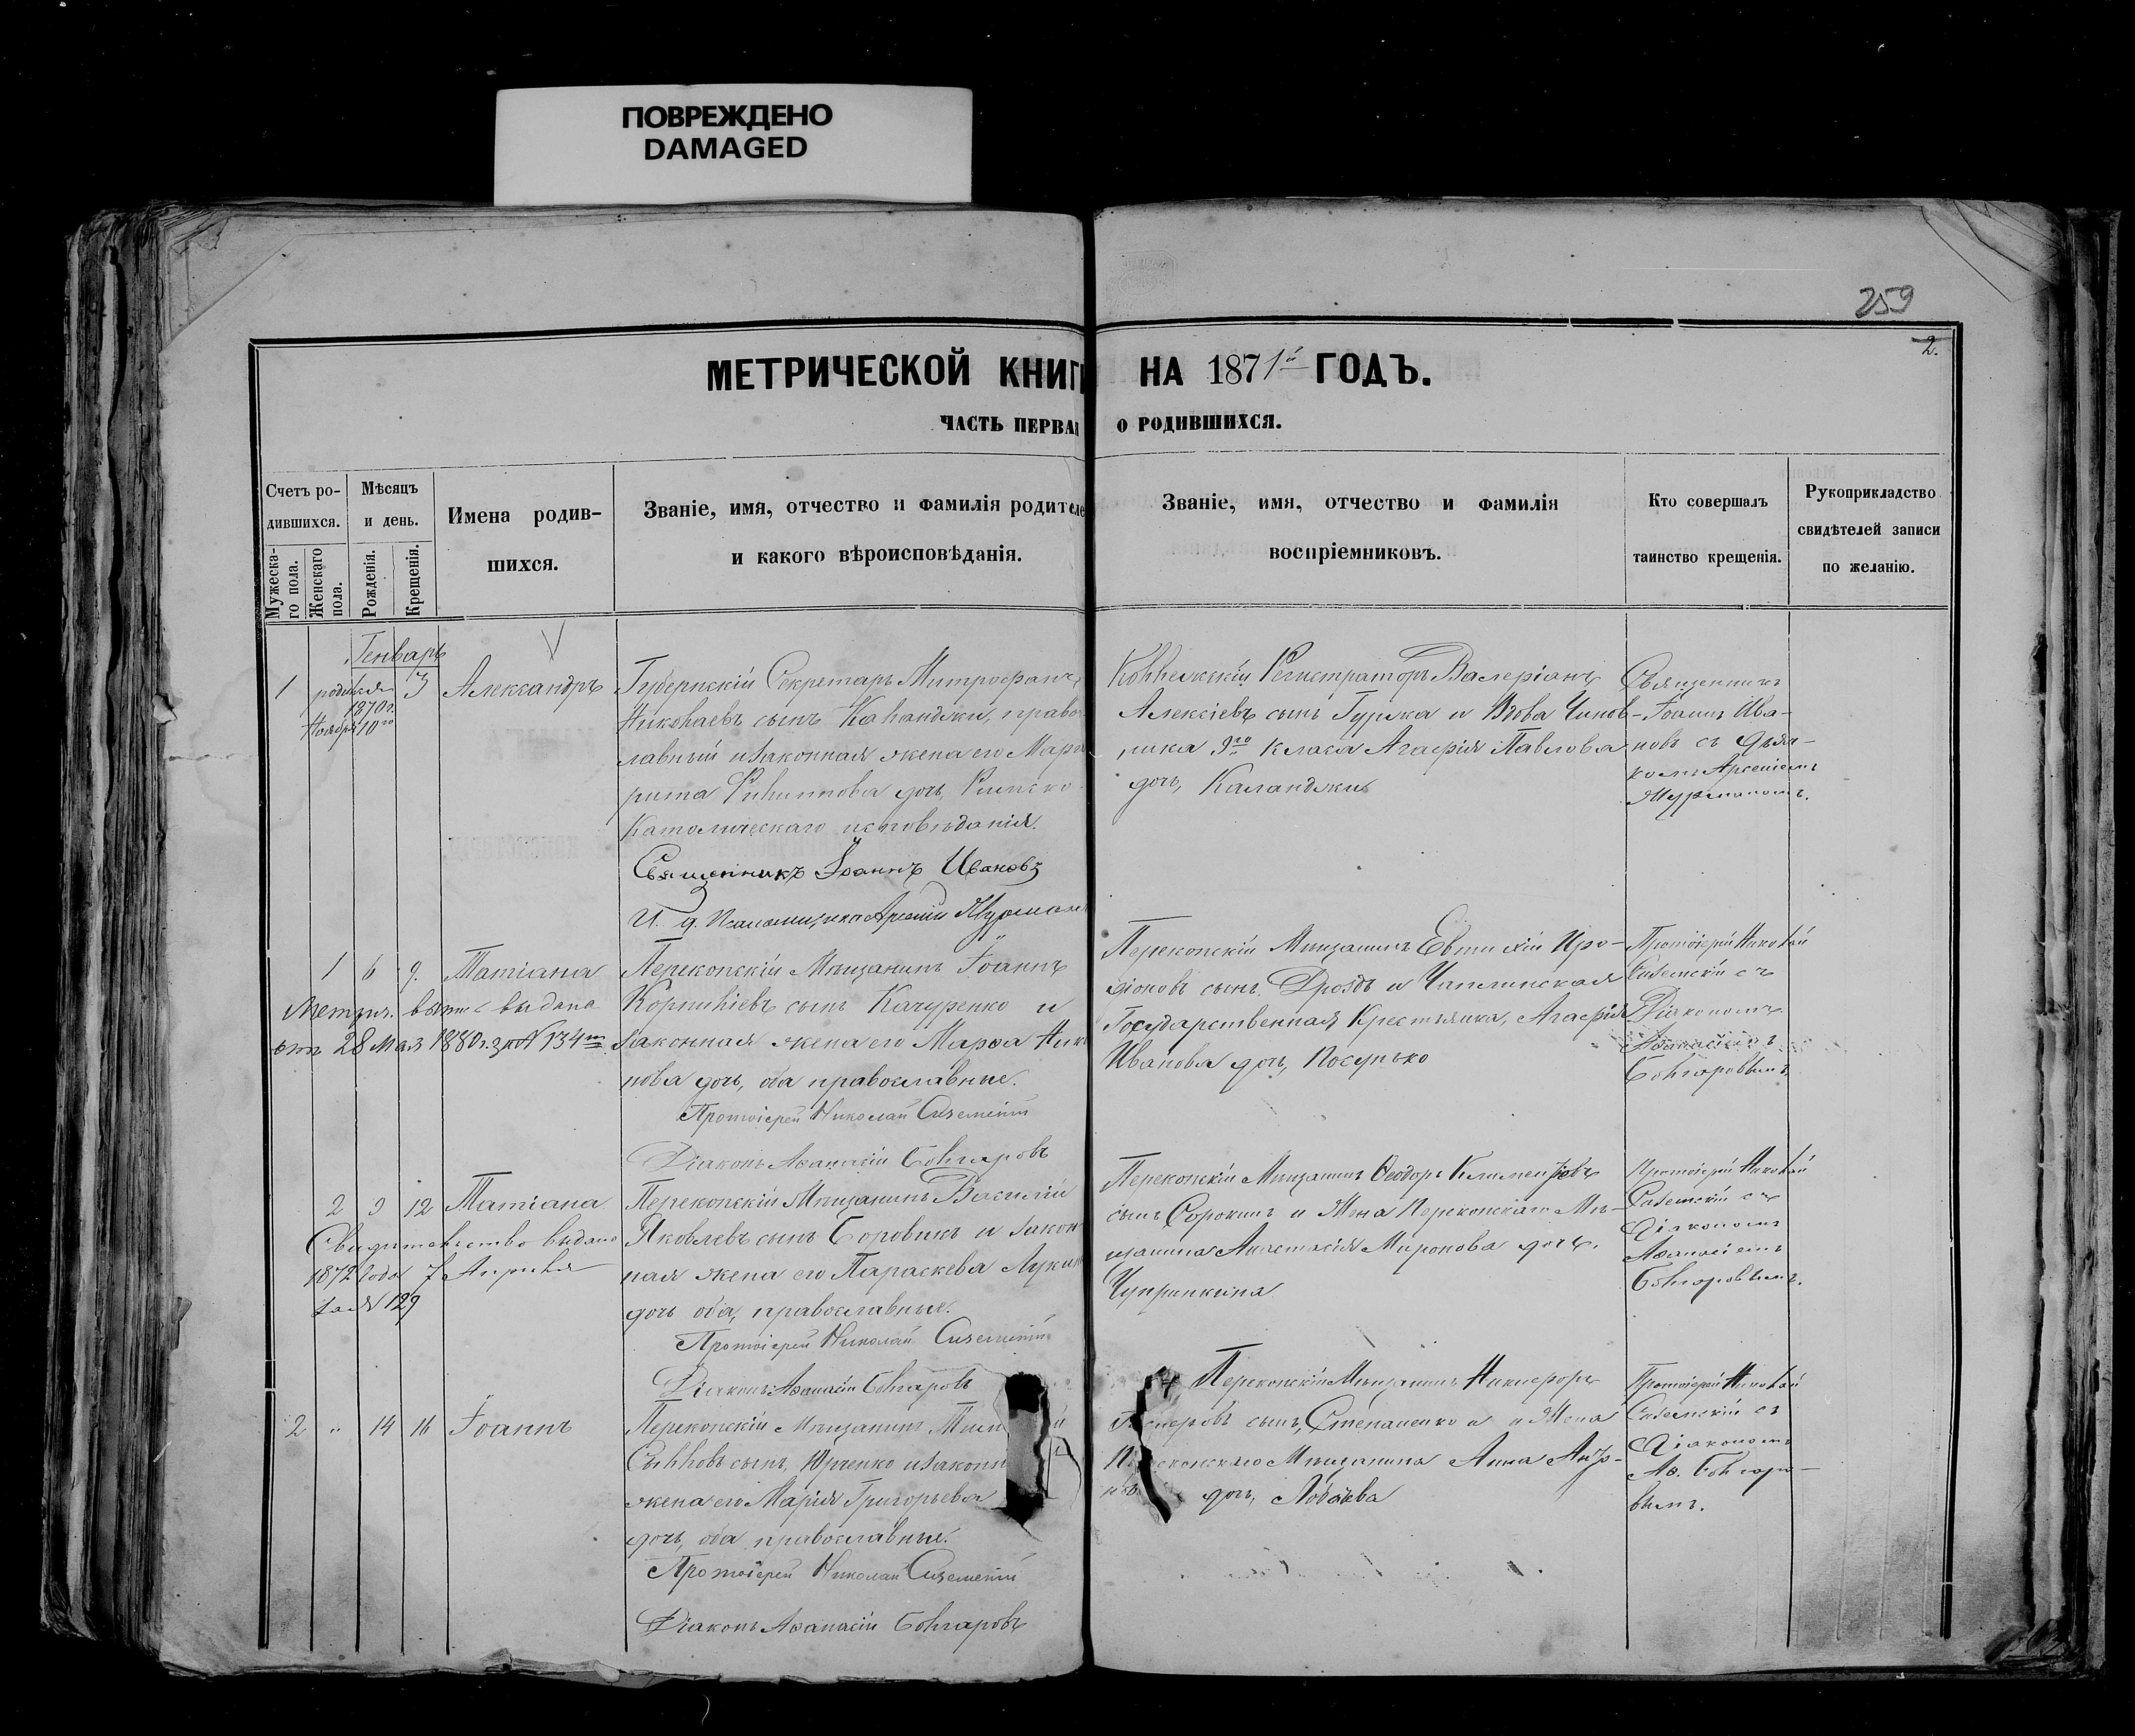 ПОВРЕЖДЕНО
DAMAGED
259
2.
МЕТРИЧЕСКОЙ КНИГ НА 1871й ГОДЪ.
ЧАСТЬ ПЕРВАЯ О РОДИВШИХСЯ.
Счетъ ро-
дившихся.
Мужеска-
го пола.
Женскаго
пола.
Мѣсяцъ
и день.
Рожденія.
Крещенія.
Имена родив-
шихся.
Званіе, имя, отчество и фамилія родителе
и какого вѣроисповѣданія.
Званіе, имя, отчество и фамилія
воспріемниковъ.
Кто совершалъ
таинство крещенія.
Рукоприкладство
свидѣтелей записи
по желанію.
Генварь
1 родился 3 Александръ
1870 г.
Ноября 10го
Губернскій Секретарь Митрофанъ
Николаевъ сынъ Каланджи, право
лавный и законная жена его Марга
рита Филиппова дочь, Римско
Католическаго исповѣданія.
Священникъ Іоаннъ Ивановъ
И. д. Псаломщика Арсеній
Коллежскій Регистраторъ Валеріанъ
Алексіевъ сынъ Гуржа и Вдова Чинов-
ника 9го класа Агафія Павлова
дочь, Каланджи
Священникъ
Іоаннъ Ива-
новъ съ Дьяч-
комъ Арсеніемъ
1 6 9. Татіана
Метрич. выпис выдана
отъ 28 Мая 1880 г. за № 134м
Перекопскій Мѣщанинъ Іоаннъ
Корниліевъ сынъ Качуренко и
Законная жена его Марѳа
нова дочь, оба православные.
Протоіерей Николай Сиземскій
Діаконъ Аѳанасій Болгаровъ
Перекопскій Мѣщанинъ Евтихій Иро-
діоновъ сынъ Дроздъ и Чаплинская
Государственная Крестьянка, Агафія
Иванова дочь, Посунько
Протоіерей Николай
Сиземскій съ
Діакономъ
Аѳанасіемъ
Болгаровымъ
2 9 12 Татіана
Свидѣтельство выдано
1872 года 7 Апрѣля
за № 129
Перекопскій Мѣщанинъ Василій
Яковлевъ сынъ Боровикъ и закон
ная жена его Параскева Лукин
дочь оба, православные.
Протоіерей Николай Сиземскій
Діаконъ Аѳанасій Болгаровъ
Перекопскій Мѣщанинъ Ѳеодоръ Климентовъ
сынъ Сорокинъ и Жена Перекопскаго Мѣ-
щанина Анастасія Миронова дочь,
Чупринкина
Протоіерей Николай
Сиземскій съ
Діакономъ
Аѳанасіемъ
Болгаровымъ.
2 " 14 16 Іоаннъ
Перекопскій Мѣщанинъ
сынъ, Юрченко и законн
жена его Марія Григорьева
дочь, оба православные.
Протоіерей Николай Сиземскій
Діаконъ Аѳанасій Болгаровъ
Перекопскій Мѣщанинъ Никифоръ
сынъ, Степаненко и и Жена
Мѣщанина Анна
дочь, Лобачева
Протоіерей Николай
Сиземскій съ
Діакономъ
Аѳ. Болгаро-
вымъ.